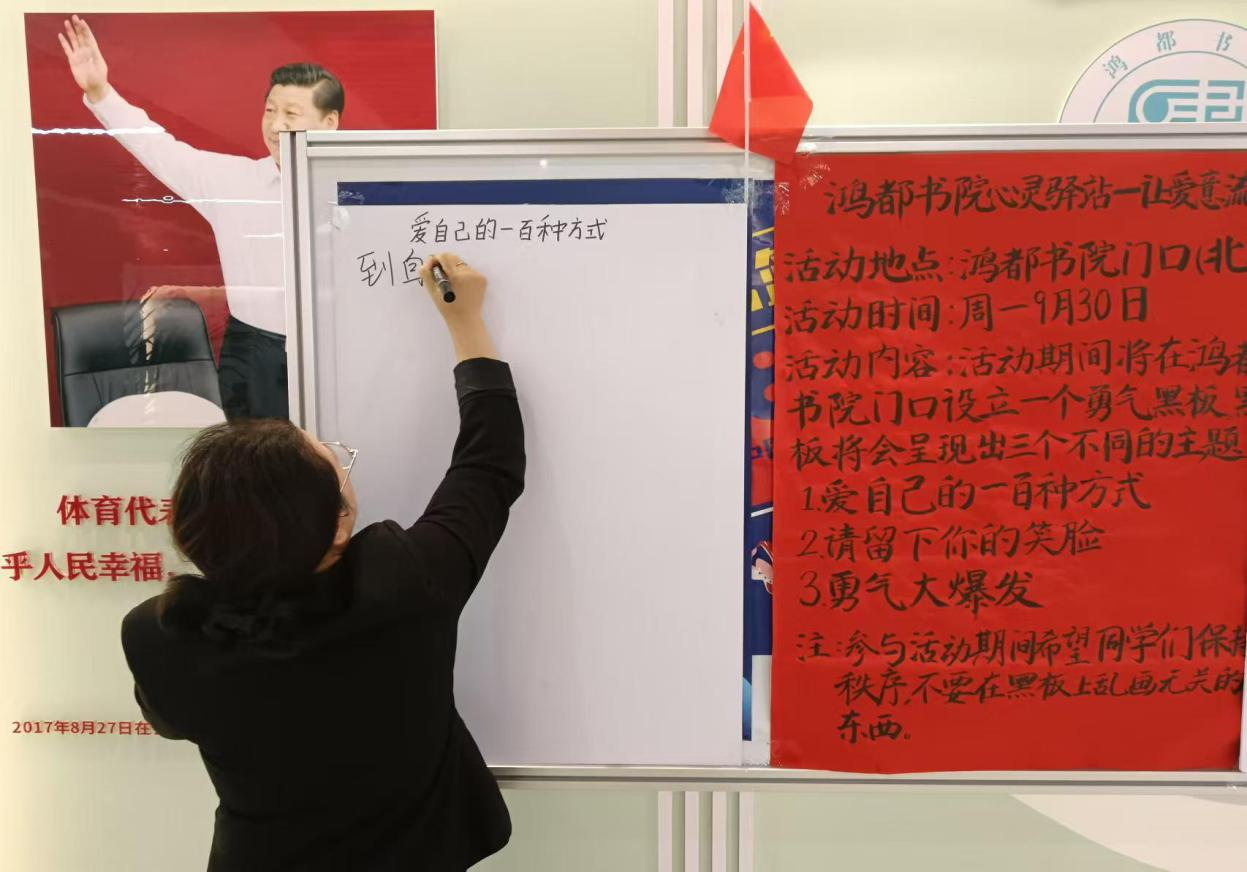 体育代
乎人民幸福，
2017年8月27日在
爱自己的一百种方式
到
鸿都书
鸿都书院心灵驿站一让爱意流
活动地点:鸿都书院门口(北
活动时间:周一9月30日
活动内容:活动期间将在鸿都
书院门口设立一个勇气黑板
板将会呈现出三个不同的主题
1.爱自己的一百种方式
2.请留下你的笑脸
3.勇气大爆发
注:参与活动期间希望同学们保持
秩序,不要在黑板上乱画无关的
东西。